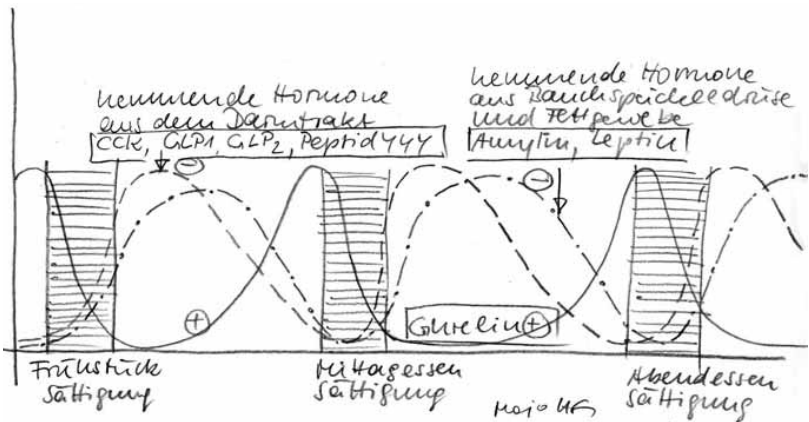 hemmende Hormone
aus dem Darmtrakt
CCK, GLP1, GLP2, Peptid YYY
hemmende Hormone
aus Bauchspeicheldrüse
und Fettgewebe
Amylin, Leptin
−
−
+
Ghrelin +
Frühstück
Sättigung
Mittagessen
Sättigung
Abendessen
Sättigung